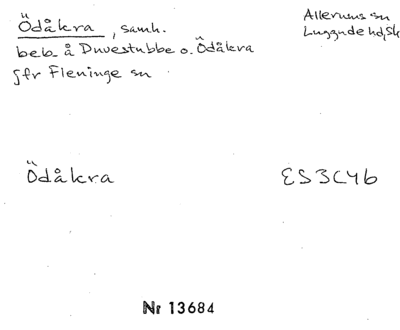 Ödåkra, samh. Allerums sn
beb. å Duvestubbe o. Ödåkra Luggude hd, Sk
jfr Fleninge sn
Ödåkra ES3C4b
Nr 13684